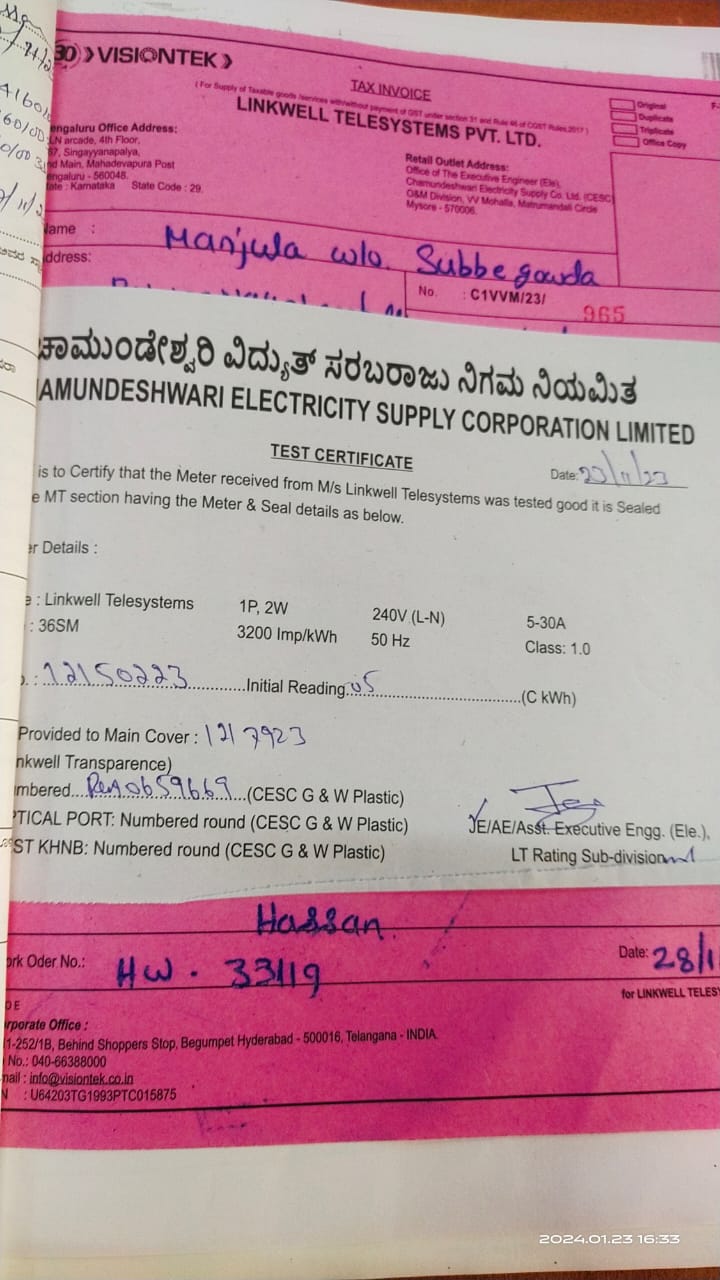 VISIONTEK
TAX INVOICE
( For Supply of Taxable goods /services with/without payment of GST under section 31 and Rule 46 of CGST Rules,2017 )
LINKWELL TELESYSTEMS PVT. LTD.
Original
Duplicate
Triplicate
Office Copy
F-
engaluru Office Address:
LN arcade, 4th Floor,
97, Singayyanapalya,
nd Main, Mahadevapura Post
engaluru - 560048.
tate : Karnataka State Code : 29.
Retail Outlet Address:
Office of The Executive Engineer (Ele),
Chamundeshwari Electricity Supply Co. Ltd. (CESC)
O&M Division, VV Mohalla, Matrumandali Circle
Mysore - 570006.
Name : Manjula w/o. Subbegowda
ddress:
No. : C1VVM/23/ 965
ಚಾಮುಂಡೇಶ್ವರಿ ವಿದ್ಯುತ್ ಸರಬರಾಜು ನಿಗಮ ನಿಯಮಿತ
AMUNDESHWARI ELECTRICITY SUPPLY CORPORATION LIMITED
TEST CERTIFICATE
Date: 23/11/23
is to Certify that the Meter received from M/s Linkwell Telesystems was tested good it is Sealed
e MT section having the Meter & Seal details as below.
er Details :
e : Linkwell Telesystems 1P, 2W 240V (L-N) 5-30A
: 36SM 3200 Imp/kWh 50 Hz Class: 1.0
o. : 12150223 Initial Reading 05 (C kWh)
Provided to Main Cover : 1217923
nkwell Transparence)
mbered... 0659669 ...(CESC G & W Plastic)
PTICAL PORT: Numbered round (CESC G & W Plastic)
ST KHNB: Numbered round (CESC G & W Plastic)
JE/AE/Asst. Executive Engg. (Ele.),
LT Rating Sub-division
Hassan
ork Oder No.: HW . 33119
Date: 28/1
for LINKWELL TELESY
DE
rporate Office :
1-252/1B, Behind Shoppers Stop, Begumpet Hyderabad - 500016, Telangana - INDIA.
No.: 040-66388000
mail : info@visiontek.co.in
N : U64203TG1993PTC015875
2024.01.23 16:33